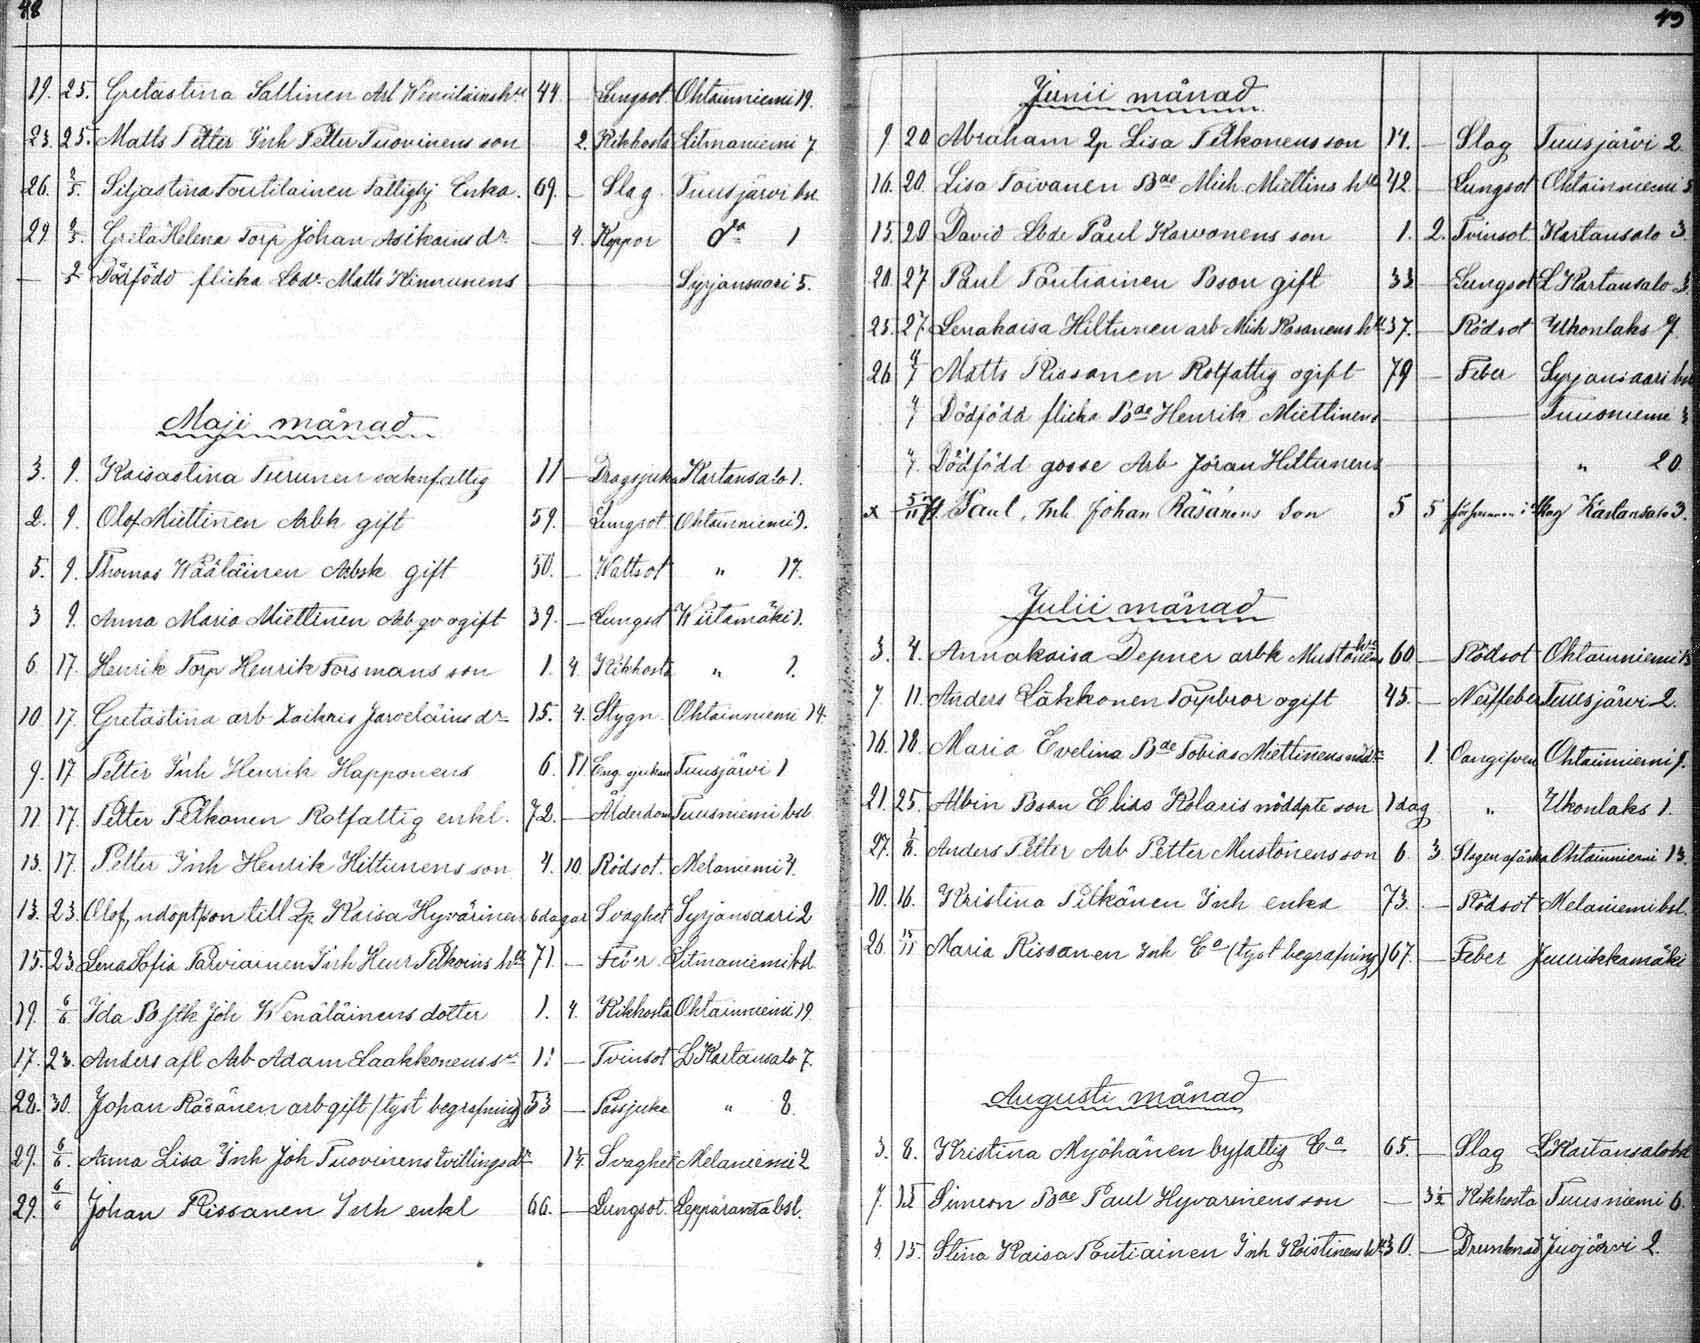 48
19. 25. Gretastina Sallinen Arb Wenäläins hu 44 — Lungsot Ohtaanniemi 19.
23. 25. Matts Petter Inh Petter Tuovinens son 2. Kikhosta Litmaniemi 7
26. 2/5. Siljastina Tontilainen Fattighj Enka. 69. — Slag. Tuusjärvi bsl.
29. 2/5. Greta Helena Torp Johan Asikains dr — 4. Koppor da 1
— 2/5 Dödfödd flicka Lbde Matts Kinnunens — Syrjänsaari 5.
Maji månad
3. 9. Kaisastina Turunen saknfattig 11 — Dragsjuka Kartansalo 1.
2. 9. Olof Miettinen Arbk gift 59. — Lungsot Ohtaanniemi 9.
5. 9. Thomas Wäätäinen Arbk gift 50. — Wattsot " 17.
3 9. Anna Maria Miettinen Arb qv ogift 39. — Lungsot Wiitamäki 1.
6. 17. Henrik Torp Henrik Forsmans son 1. 4. Kikhosta " 1.
10 17. Gretastina arb Zakris Jarveläins dr 15. 4. Stygn. Ohtaanniemi 14.
9. 17 Petter Inh Henrik Happonens 6. 11 Eng. sjukan Tuusjärvi 1
11 17. Petter Pelkonen Rotfattig enkl. 72. — Ålderdom Tuusniemi bsl
13. 17. Petter Inh Henrik Hiltunens son 4. 10 Rödsot. Melaniemi 4.
13. 23. Olof, ndöpt son till Qp. Kaisa Hyvärinen 6 dagar Svaghet Syrjänsaari 2
15. 23. Lena Sofia Parviainen Inh Henr Pelkoins hu 71. — Feber Litmaniemi bsl.
19. 6/6 Ida B Jtk Joh Wenäläinens dotter 1. 4. Kikhosta Ohtaanniemi 19
17. 23. Anders afl Arb Adam Laakkonens sn 11 — Tvinsot L Kartansalo 7.
28. 30. Johan Räsänen arb gift (tyst begrafning) 53 — Pässjuka " 8.
29. 6/6. Anna Lisa Inh Joh Tuovinens tvillings dr 1¼. Svaghet Melaniemi 2
29. 6/6 Johan Rissanen Inh enkl 66. — Lungsot. Leppäranta bsl.
49
Junii månad
9 20 Abraham Qp Lisa Pelkonens son 14. — Slag Tuusjärvi 2.
16. 20. Lisa Toivanen Bde Mich Miettins hu 42 — Lungsot Ohtaanniemi 5
15. 20 David Lbde Paul Karvonens son 1. 2. Tvinsot Kartansalo 3.
20. 27 Paul Pontiainen Bson gift 33 — Lungsot L Kartansalo 3.
25. 27. Lenakaisa Hiltunen arb Mich Räsänens hu 37. — Rödsot Ukonlaks 9.
26 4/7 Matts Rissanen Rotfattig ogift 79 — Feber Syrjänsaari bsl
4/7 Dödfödd flicka Bde Henrik Miettinens — Tuusniemi 3
4/7. Dödfödd gosse Arb Jöran Hiltunens — " 20.
x 5/11 71. Paul, Inh Johan Räsänens son 5 5 Kartansalo 3.
Julii månad
3. 4. Annakaisa Depner arbk Mustonens hu 60 — Rödsot Ohtaanniemi 13
7. 11. Anders Läkkonen Torpbror ogift 45. — Nerffeber Tuusjärvi 2.
16. 18. Maria Evelina Bde Tobias Miettinens dr 1. Oangifven Ohtaanniemi 9.
21. 25. Albin Bson Elias Kolaris nöddpte son 1 dag " Ukonlaks 1.
27. 1/8. Anders Petter Arb Petter Mustonens son 6. 3. Slagen af åska Ohtaanniemi 13.
10. 16. Kristina Pitkänen Inh enka 73. — Rödsot Melaniemi bsl.
26. 15/11 Maria Rissanen Inh Ea (tyst begrafning) 67. — Feber Juurikkamäki
Augusti månad
3. 8. Kristina Myöhänen byfattig Ea 65. — Slag L Kartansalo bsl
7. 15 Simeon Bde Paul Hyvärinens son — 3½ Kikhosta Tuusniemi 6.
9. 15. Stina Kaisa Pontiainen Inh Koistinens hu 30. — Drunknad Juojärvi 2.